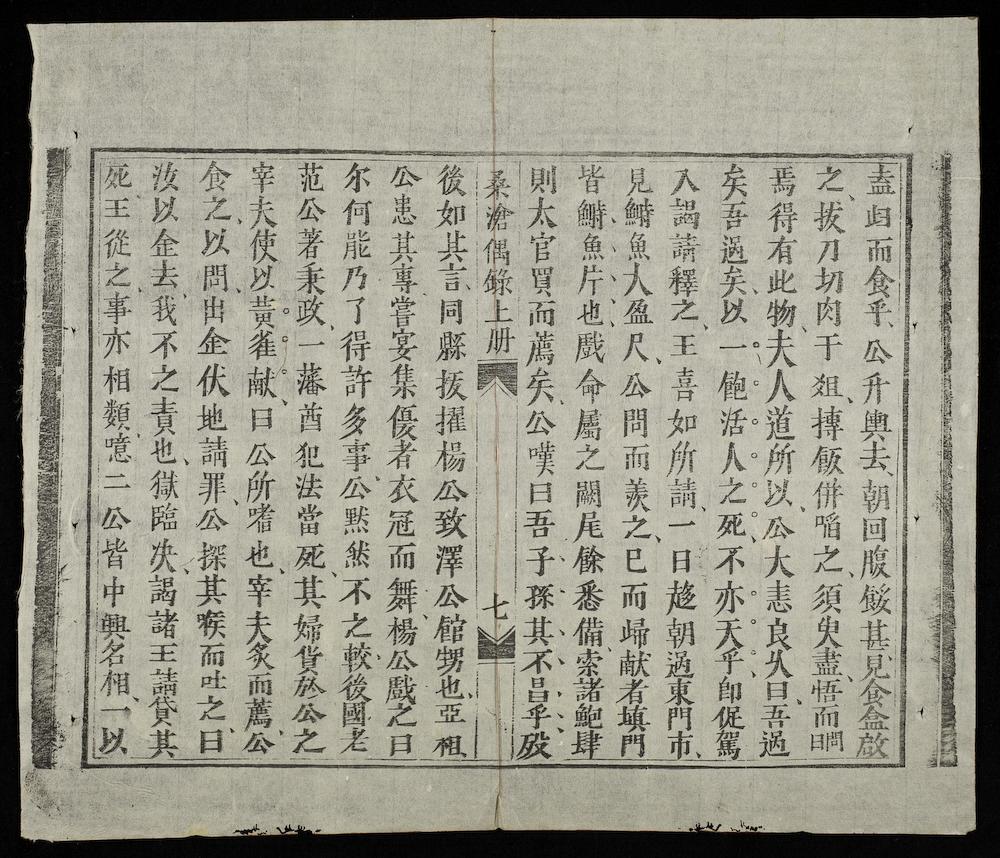 盍归而食乎公升輿去朝回腹餒甚見食盒啟
之拔刀切肉于俎摶飯併啗之須臾盡悟而問曰
焉得有此物夫人道所以公大恚良久曰吾過
矣吾過矣以一飽活人之死不亦天乎即促駕
入謁請釋之王喜如所請一日趍朝過東門市
見鰣魚大盈尺公問而羨之巳而歸献者填門
皆鰣魚片也戲命屬之闕尾餘悉備索諸鮑肆
則太官買而薦矣公嘆曰吾子孫其不昌乎殁
桑滄偶錄上册
七
後如其言同縣拔擢楊公致澤公館甥也亞祖
公患其專嘗宴集優者衣冠而舞楊公戲之曰
尔何能乃了得許多事公黙然不之較後國老
范公著秉政一藩酋犯法當死其婦貨於公之
宰夫使以黄雀献曰公所嗜也宰夫炙而薦公
食之以問出金伏地請罪公探其喉而吐之曰
汝以金去我不之責也獄臨决謁諸王請貸其
死王從之事亦相類噫二公皆中興名相一以